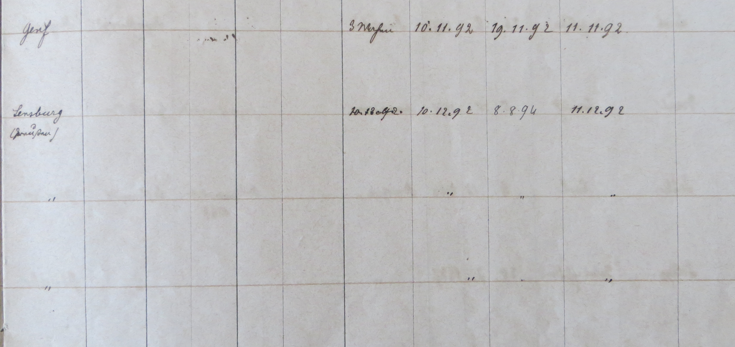 Genf 3 Wochen 10.11.92 19.11.92 11.11.92
Sensburg 10.12.92 8.8.94 11.12.92
(Preußen)
" " " "
" " "